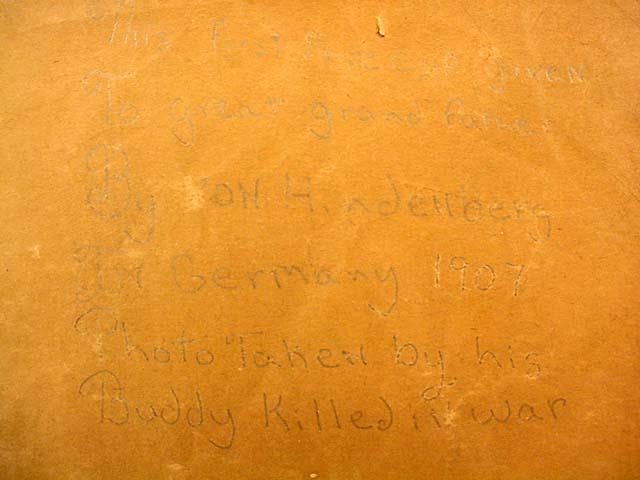 This First Prize Cup given
To great grand father
By VON Hindenberg
In Germany 1907
Photo Taken by his
Buddy Killed in war